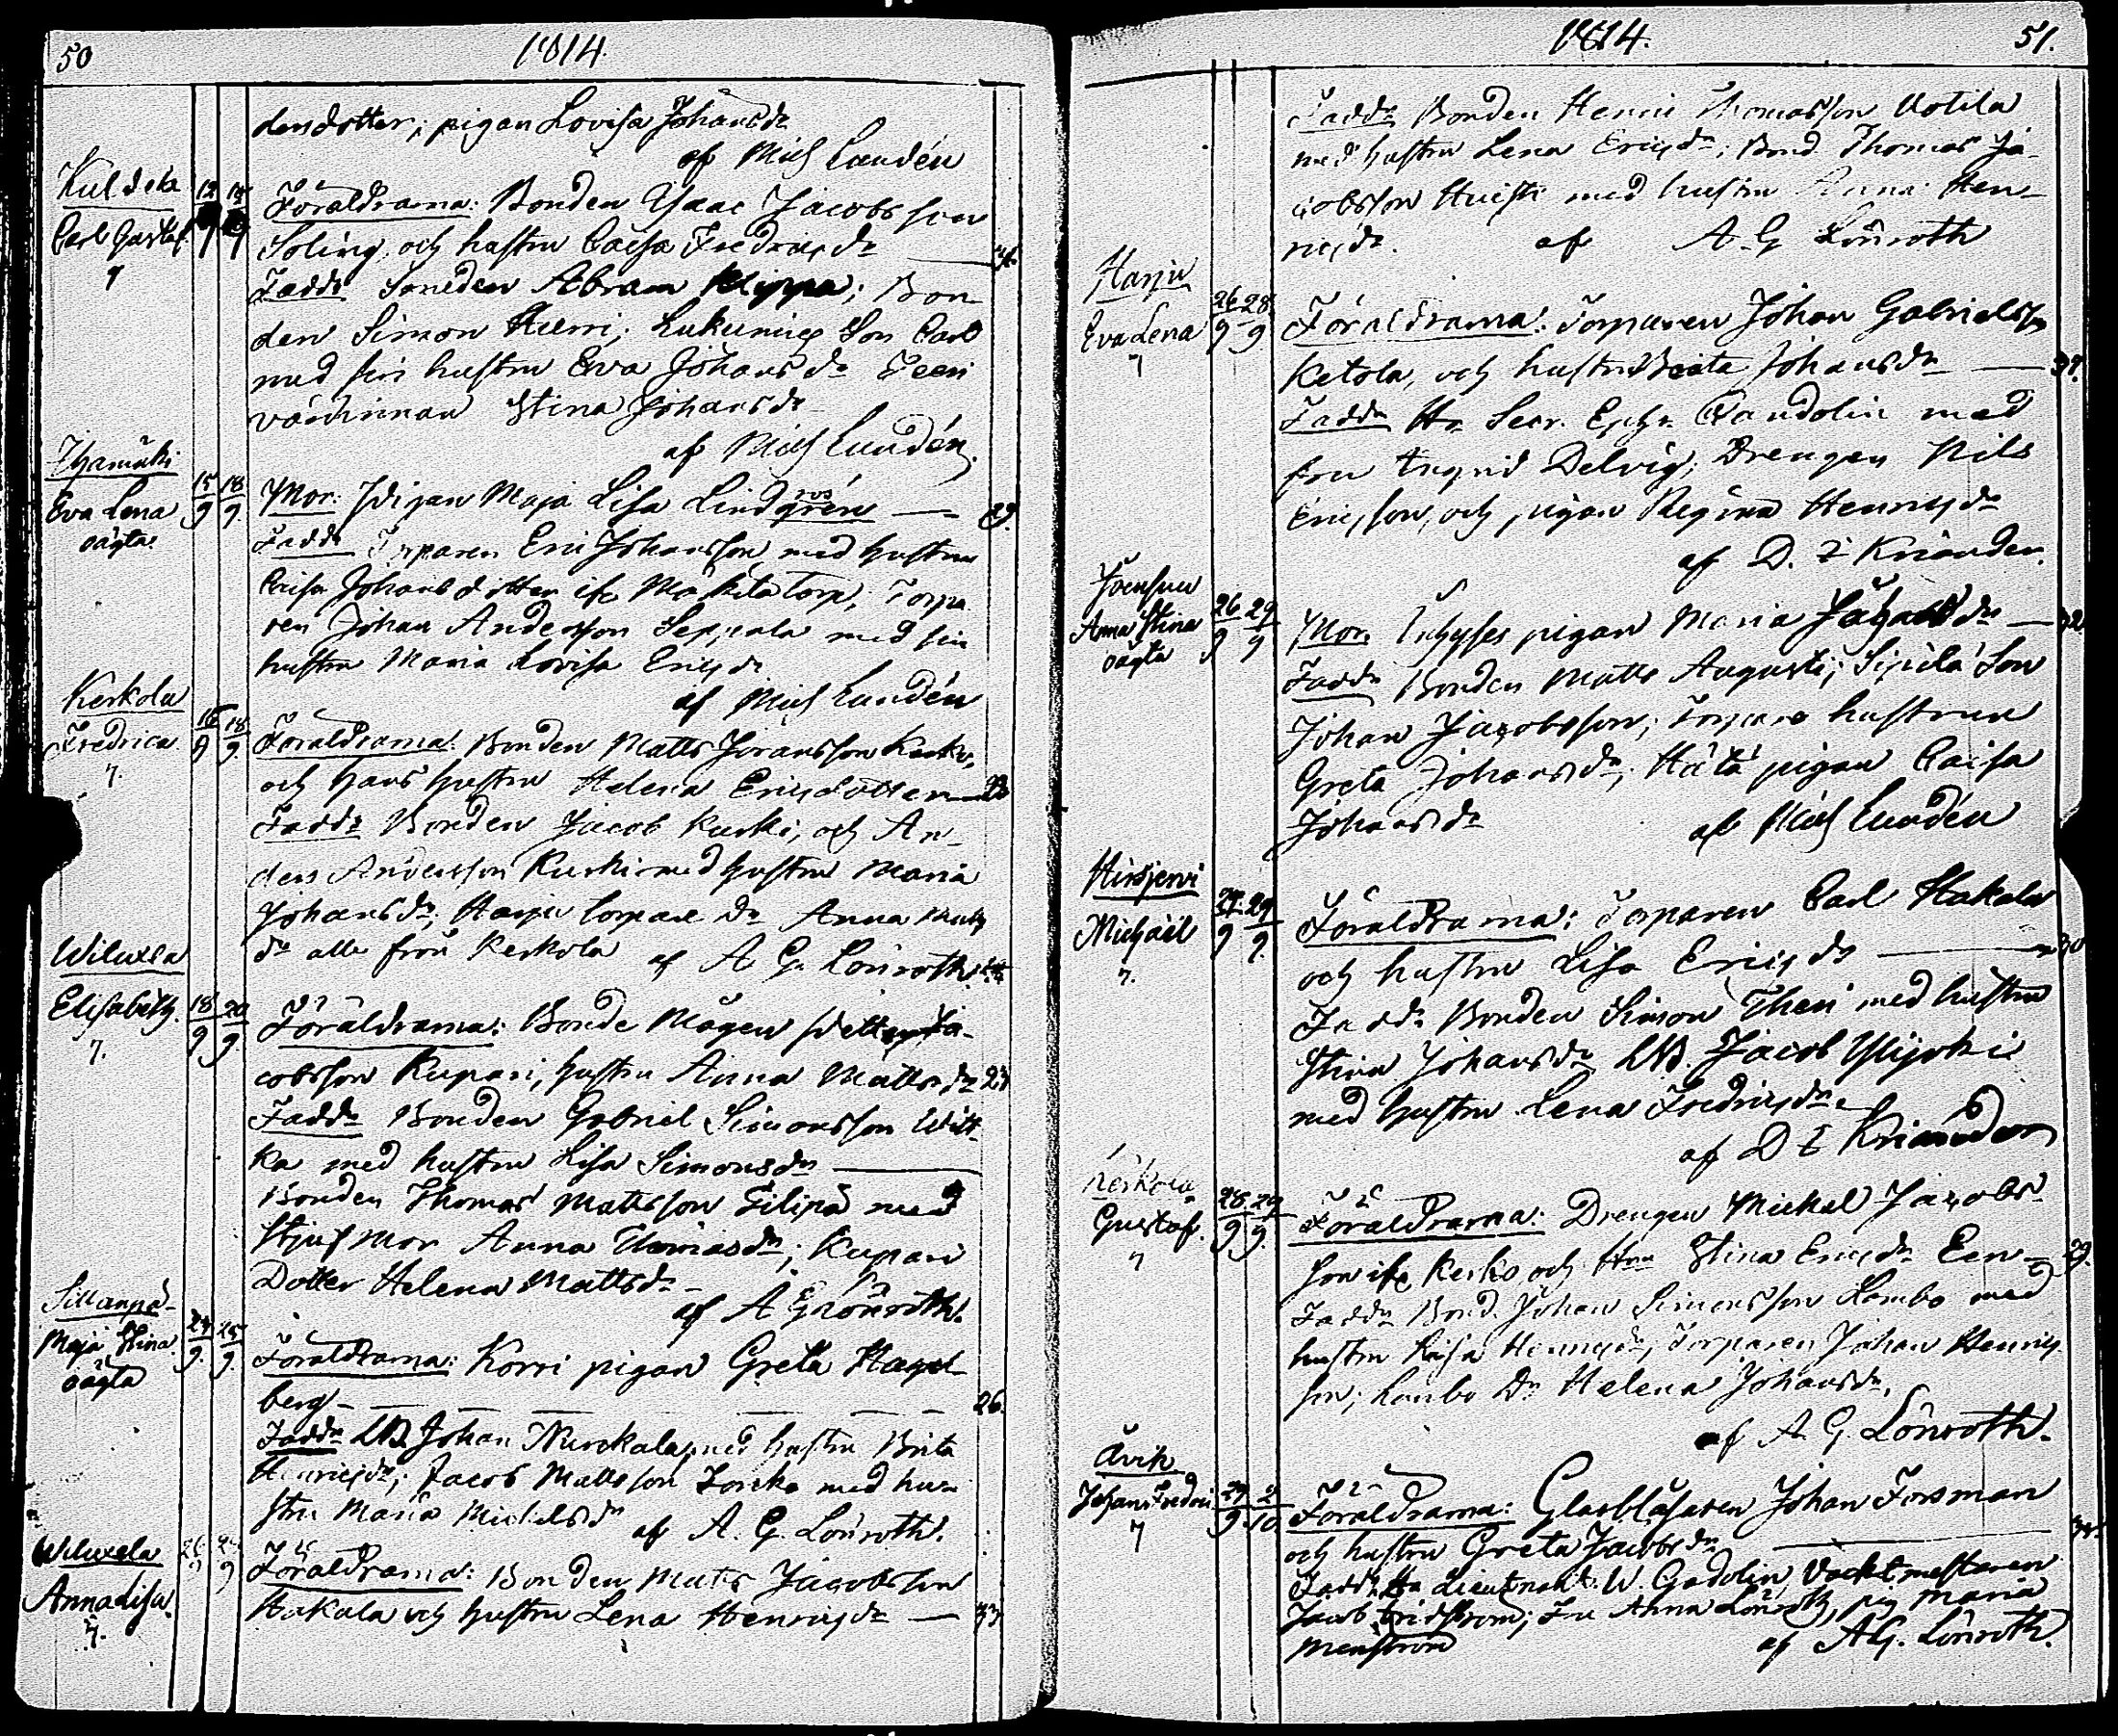 50
1814.
densdotter; pigan Lovisa Johansdr
af Mich Lundén
Carl Gustaf
12/9 18/9
Föräldrarna: Bonden Isaac Jacobsson
Soling, och hustru Caisa Fredricsdr
Faddr Abram Klippa; Bon-
den Simon; Son Carl
med sin hustru Eva Johansdr
värdinnan Stina Johansdr
af Mich Lundén.
Eva Lena
oägta.
15/9 18/9.
Mor: Pigan Maja Lisa Lindgrén — 29.
Faddr Torparen Eric Johansson med hustru
Caisa Johansdotter ifr. Mäkilä torp; Torpa
ren Johan Andersson Seppälä med sin
hustru Maria Lovisa Ericsdr
af Mich Lundén
Kerkola
Fredrica
7.
16/9 18/9.
Föräldrarna: Bonden Matts Joransson
och hans hustru Helena Ericsdotter —
Faddr Bonden Jacob Kurki, och An-
ders Andersson Kurki med hustru Maria
Johansdr; Harju torpare dr Anna Matts
dr alla från Kerkola af A G. Lönroth.
Elisabeth.
7.
18/9 20/9.
Föräldrarna: Bonde Mågen Petter Ja-
cobsson Kupari, hustru Anna Mattsdr
Faddr Bonden Gabriel Simonsson Witt-
ka med hustru Lisa Simonsdr —
Bonden Thomas Mattsson Filipa med
Stjufmor Anna Thomasdr; Kupari
Dotter Helena Mattsdr —
af A G Lönroth.
Sillanpä-
Maja Stina
oägta
24/9. 25/9.
Föräldrarna: Korri pigan Greta Hagel-
berg — 26.
Faddr LB. Johan Nurckala med hustru Brita
Henricsdr; Jacob Mattsson med hu-
stru Maria Michelsdr af A. G. Lönroth.
Wiluxela
Anna Lisa.
7.
Föräldrarna: Bonden Matts Jacobsson
Hakala och hustru Lena Henricsdr — 33
1814.
51.
Faddr Bonden Henric Thomasson Uotila
med hustru Lena Ericsdr; Bond. Thomas Ja-
cobsson med hustru Anna Hen-
ricsdr. af A. G Lönroth
Harju
Eva Lena
7
26/9 28/9
Föräldrarna: Torparen Johan Gabrielsson
Ketola, och hustru Beata Johansdr —
Faddr Hr Secr. Pandolin med
fru Ingrid Delvig; Drengen Nils
Ericsson, och pigan Regina Henricsdr
af D. Z Kriander.
Joensuu
Anna Stina
oägta
26/9 29/9
Mor. Inhyses pigan Maria —
Faddr Bonden Matts Augusti; Sipilä Son
Johan Jacobsson; Torpare hustrun
Greta Johansdr; pigan Caisa
Johansdr af Mich Lundén
Hirsjervi
Michaël
7.
27/9 29/9.
Föräldrarna: Torparen Carl Hakala
och hustru Lisa Ericsdr — 30
Faddr Bonden Simon Theri med hustru
Stina Johansdr LB. Jacob Ylijoki
med hustru Lena Fredricsdr.
af D Z Kriander
Kerkola
Gustaf.
7
28/9 29/9.
Föräldrarna: Drengen Mickel Jacobs-
son ifr Kerko och Hu Stina Ericsdr — 29.
Faddr Bond. Johan Simonsson Lambo med
hustru Caisa Henricsdr; Torparen Johan Henrics-
son; Lambo Dr Helena Johansdr.
af A. G. Lönroth.
Åvik
Johan Fredric
7
29/9 2/10.
Föräldrarna: Glasblåsaren Johan Forsman
och hustru Greta Jacobsdr —
Faddr Hr Lieutnant W. Gadolin Vacktmestaren
Jacob; Fru Anna Lönroth, pig Maria
Menström af AG. Lönroth.